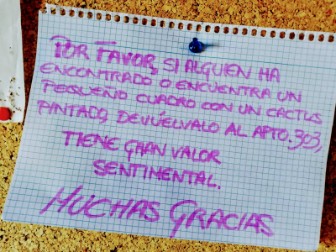 POR FAVOR, SI ALGUIEN HA
ENCONTRADO O ENCUENTRA UN
PEQUEÑO CUADRO CON UN CACTUS
PINTADO, DEVUÉLVALO AL APTO. 303,
TIENE GRAN VALOR
SENTIMENTAL.
MUCHAS GRACIAS